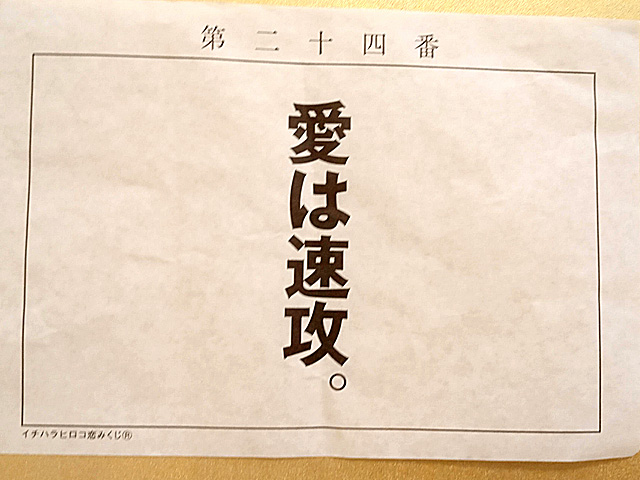 第二十四番
愛は速攻。
イチハラヒロコ恋みくじ®